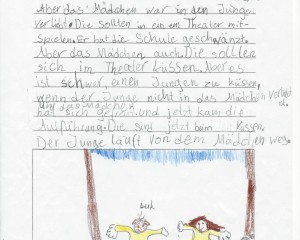 Aber das Mädchen war in den Junge
verliebt. Die sollten in ein en Theater mit-
spielen. Er hat die Schule geschwänzt.
Aber das Mädchen auch. Die sollten
sich im Theater küssen. Aber es
ist schwer, einen Jungen zu küssen,
wenn der Junge nicht in das Mädchen verliebt
ist.
und das Mädchen
hat sich und jetzt kam die
Aufführung. Die sind jetzt beim Küssen.
Der Junge läuft von dem Mädchen weg.